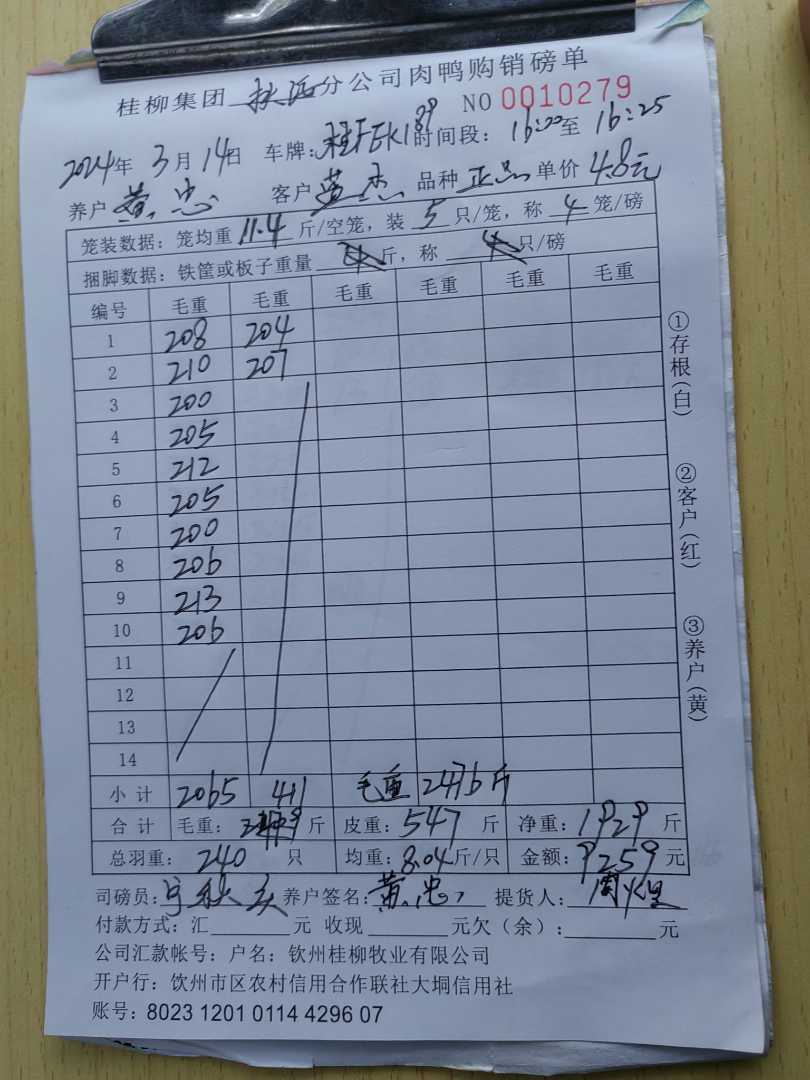 桂柳集团 分公司肉鸭购销磅单
NO 0010279
2024年 3月 14日 车牌: 桂FEK189 时间段: 16:20至 16:25
养户 黄忠 客户 黄杰 品种 正品 单价 4.8元
笼装数据: 笼均重 11.4 斤/空笼, 装 5 只/笼, 称 4 笼/磅
捆脚数据: 铁筐或板子重量 斤, 称 只/磅
编号 毛重 毛重 毛重 毛重 毛重 毛重
1 208 204
2 210 207
3 200
4 205
5 212
6 205
7 200
8 206
9 213
10 206
11
12
13
14
小计 2065 411 毛重 2476斤
合计 毛重: 斤 皮重: 547 斤 净重: 1929 斤
总羽重: 240 只 均重: 8.04斤/只 金额: 9259 元
司磅员: 养户签名: 黄忠 提货人:
付款方式: 汇 元 收现 元欠(余): 元
公司汇款帐号: 户名: 钦州桂柳牧业有限公司
开户行: 钦州市区农村信用合作联社大垌信用社
账号: 8023 1201 0114 4296 07
①存根(白)
②客户(红)
③养户(黄)